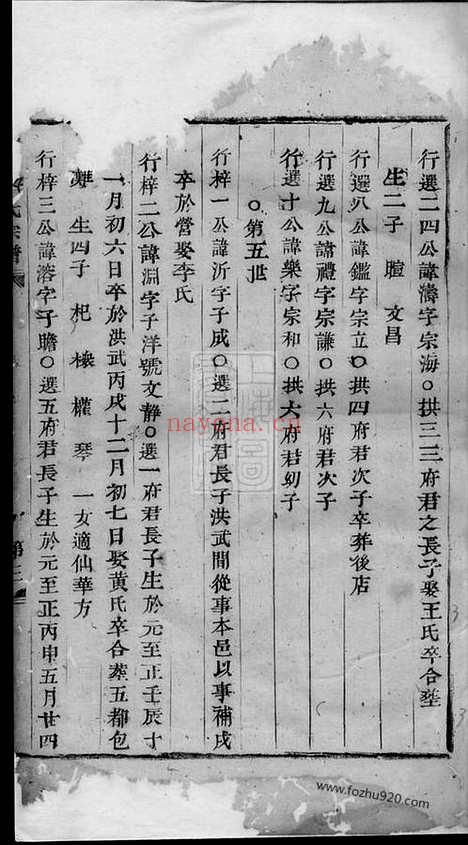 行選二四公諱濤字宗海○拱三三府君之長子娶王氏卒合塟
生二子 瞳 文昌
行選八公諱鑑字宗立○拱四府君次子卒葬後店
行選九公諱禮字宗謙○拱六府君次子
行選十公諱樂字宗和○拱六府君幼子
○第五世
行梓一公諱沂字子成○選二府君長子洪武間從事本邑以事補戍
卒於營娶李氏
行梓二公諱淵字子洋號文靜○選一府君長子生於元至正壬辰十
一月初六日卒於洪武丙戌十二月初七日娶黄氏卒合塟五都包
生四子 杞 權 琴 一女適仙華方
行梓三公諱溶字子瞻○選五府君長子生於元至正丙申五月廿四
氏宗譜
第三
nayana.cn
www.fozhu920.com